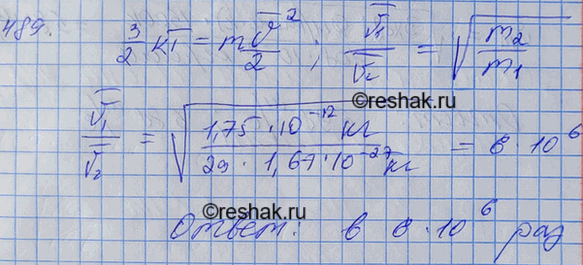 489. 3/2 kT = m v̄²/2 ; v̄₁/v̄₂ = √(m₂/m₁)
©reshak.ru
v̄₁/v̄₂ = √(1,75 · 10⁻¹² кг / 29 · 1,67 · 10⁻²⁷ кг) = 6 · 10⁶
©reshak.ru
Ответ: в 6 · 10⁶ раз